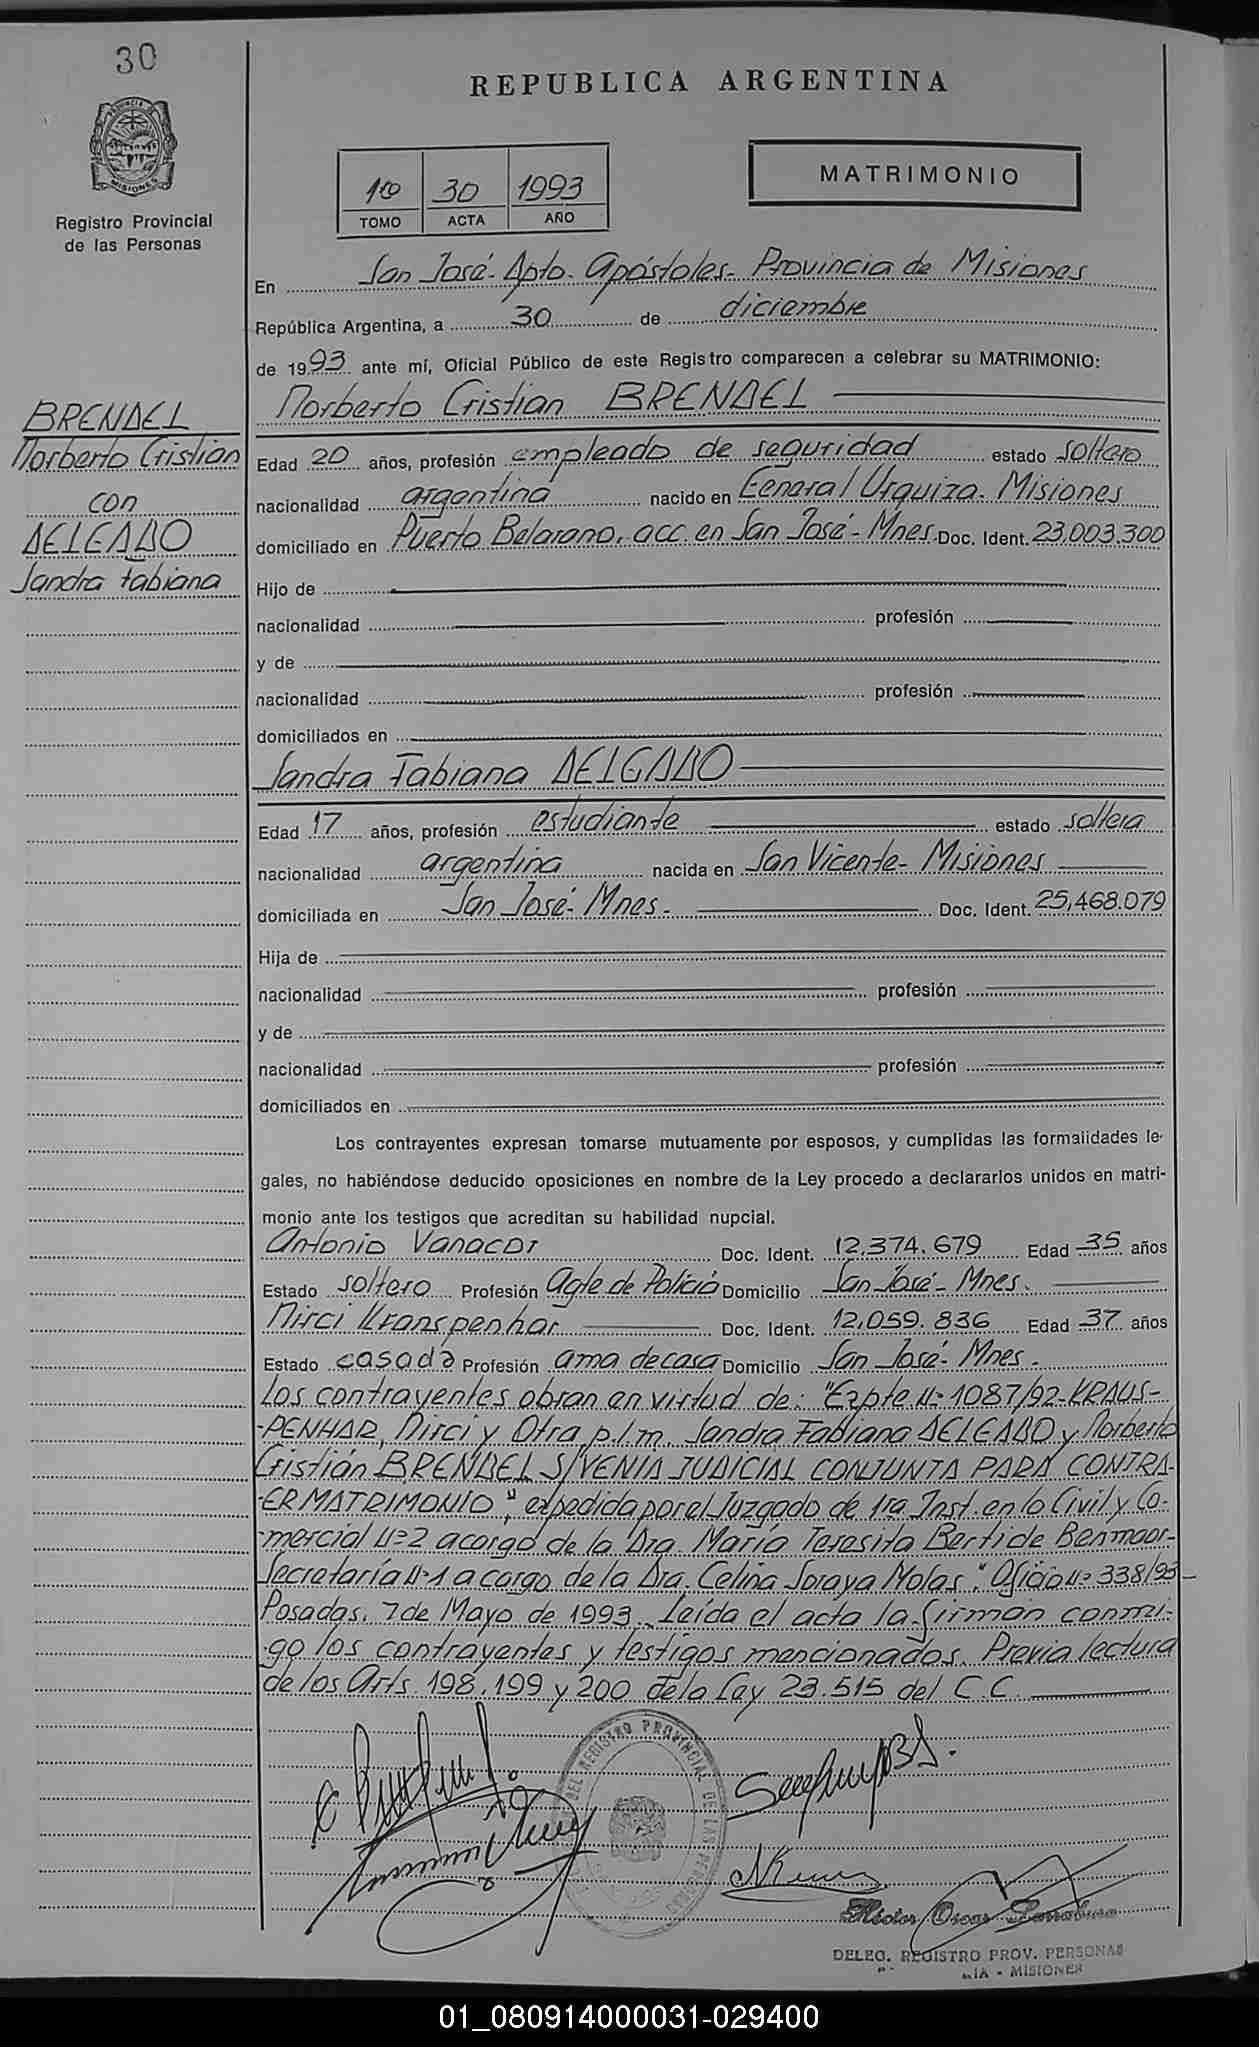 30
REPUBLICA ARGENTINA
Registro Provincial
de las Personas
MISIONES
1º 30 1993
TOMO ACTA AÑO
MATRIMONIO
En San José - Dpto. Apóstoles - Provincia de Misiones
República Argentina, a 30 de diciembre
de 1993 ante mí, Oficial Público de este Registro comparecen a celebrar su MATRIMONIO:
BRENDEL
Norberto Cristian
con
DELGADO
Sandra Fabiana
Norberto Cristian BRENDEL
Edad 20 años, profesión empleado de seguridad estado soltero
nacionalidad argentina nacido en General Urquiza. Misiones
domiciliado en Puerto Belgrano, acc. en San José - Mnes. Doc. Ident. 23.003.300
Hijo de
nacionalidad profesión
y de
nacionalidad profesión
domiciliados en
Sandra Fabiana DELGADO
Edad 17 años, profesión estudiante estado soltera
nacionalidad argentina nacida en San Vicente - Misiones
domiciliada en San José - Mnes. - Doc. Ident. 25,468.079
Hija de
nacionalidad profesión
y de
nacionalidad profesión
domiciliados en
Los contrayentes expresan tomarse mutuamente por esposos, y cumplidas las formalidades le-
gales, no habiéndose deducido oposiciones en nombre de la Ley procedo a declararlos unidos en matri-
monio ante los testigos que acreditan su habilidad nupcial.
Antonio Doc. Ident. 12,374.679 Edad 35 años
Estado soltero Profesión Agte de Policía Domicilio San José - Mnes.
Nirci Doc. Ident. 12,059.836 Edad 37 años
Estado casada Profesión ama de casa Domicilio San José - Mnes.
Los contrayentes obran en virtud de: "Expte Nº 1087/92 - KRAUS-
-PENHAR, Nirci y Otra p.l.m. Sandra Fabiana DELGADO y Norberto
Cristián BRENDEL S/VENIA JUDICIAL CONJUNTA PARA CONTRA-
-ER MATRIMONIO", expedida por el Juzgado de 1ra Inst. en lo Civil y Co-
-mercial Nº 2 a cargo de la Dra. María Teresita Berti de Benmaor-
Secretaría Nº 1 a cargo de la Dra. Celina Soraya Molas, "Oficio Nº 338/93-
Posadas, 7 de Mayo de 1993. Leída el acta la firman conmi-
-go los contrayentes y testigos mencionados. Previa lectura
de los Arts 198, 199 y 200 de la Ley 23.515 del C.C.
DEL REGISTRO PROVINCIAL DE LAS PERSONAS
Héctor Oscar
DELEG. REGISTRO PROV. PERSONAS
- MISIONES
01_080914000031-029400